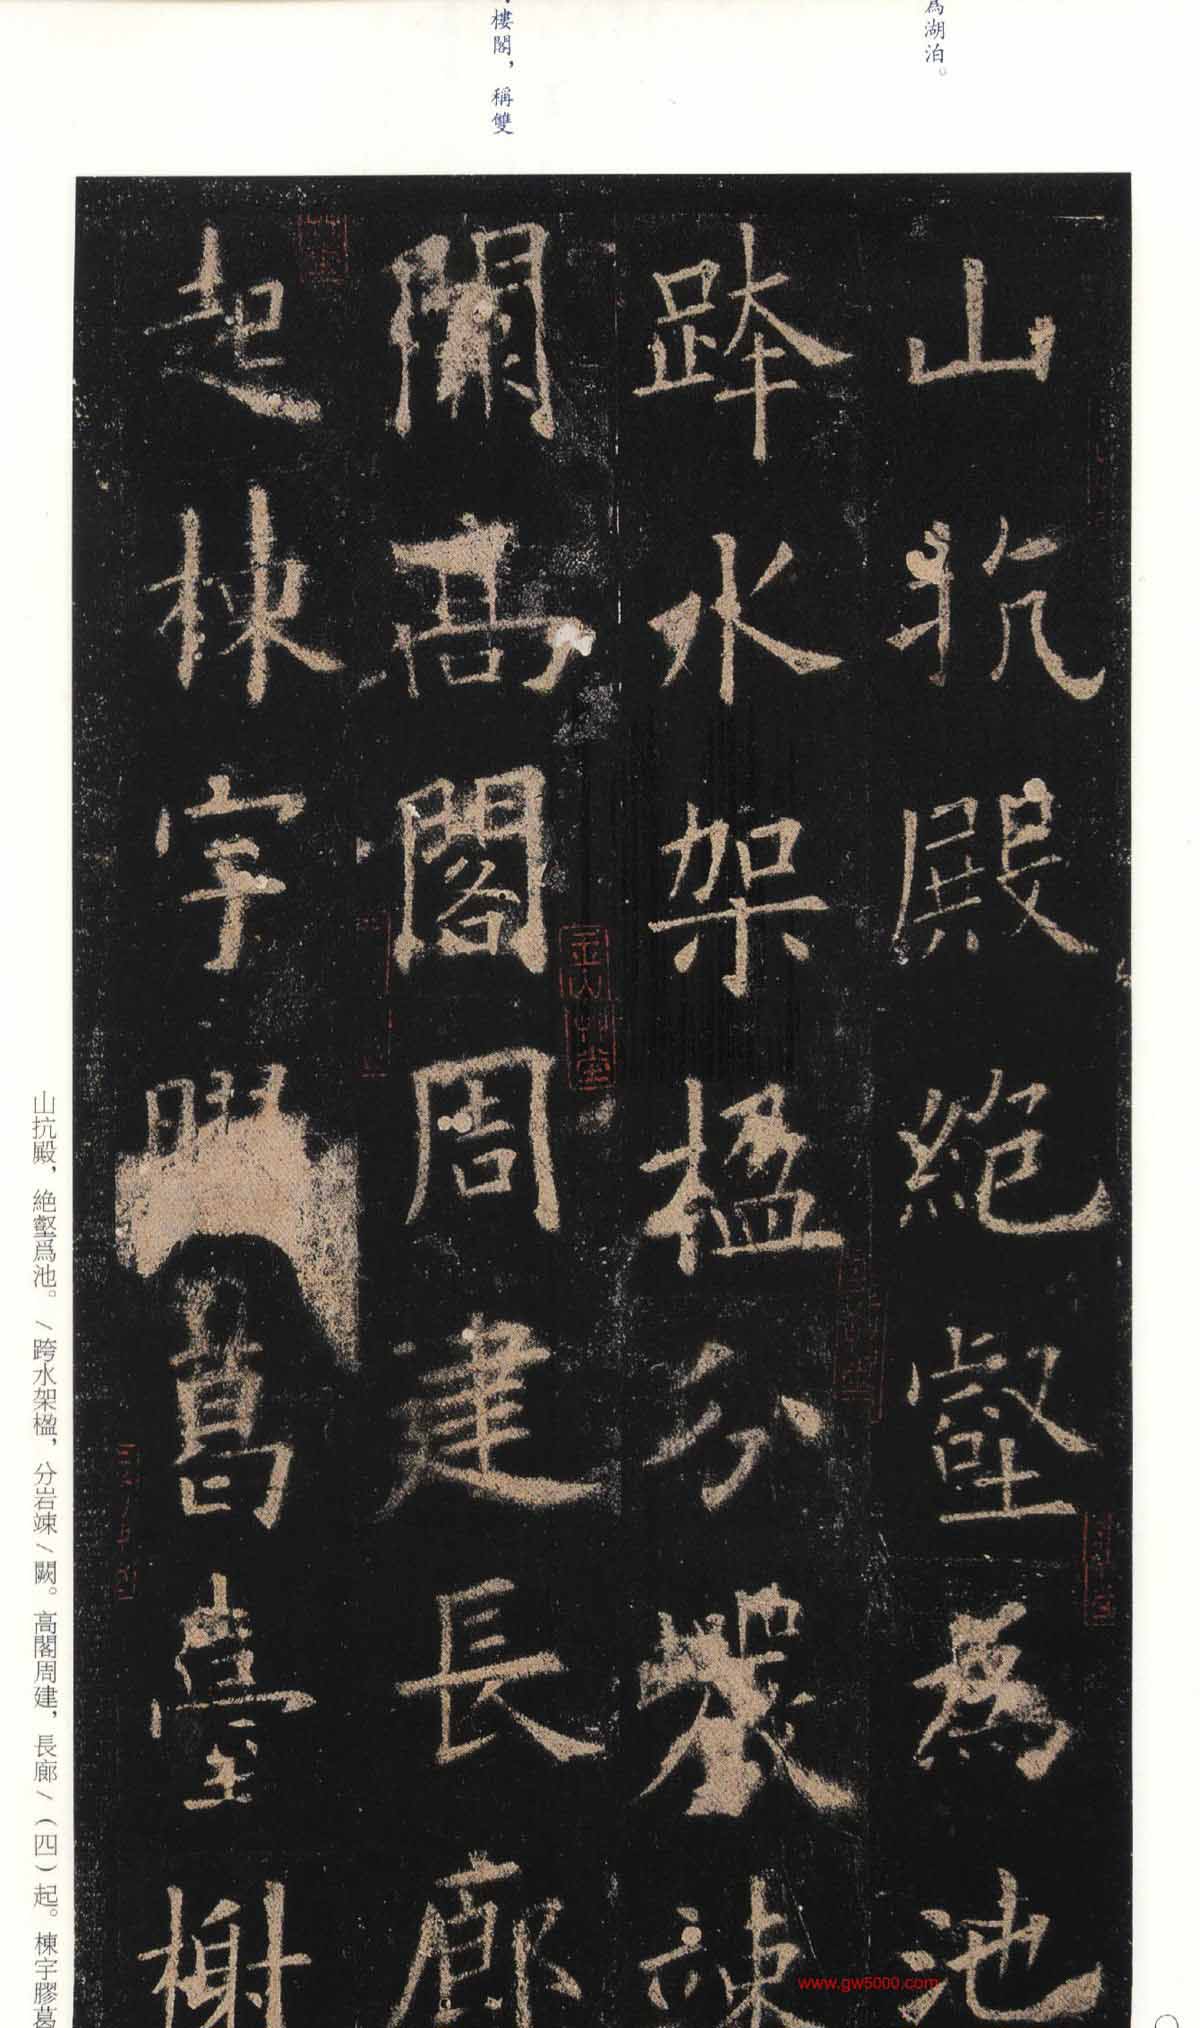 為湖泊。
樓閣，稱雙
山抗殿絕壑為池
跨水架楹分巖竦
闕高閣周建長廊
起棟宇膠葛臺榭
山抗殿，絶壑爲池。/跨水架楹，分岩竦/闕。高閣周建，長廊/（四）起。棟宇膠葛
金山草堂
www.gw5000.com